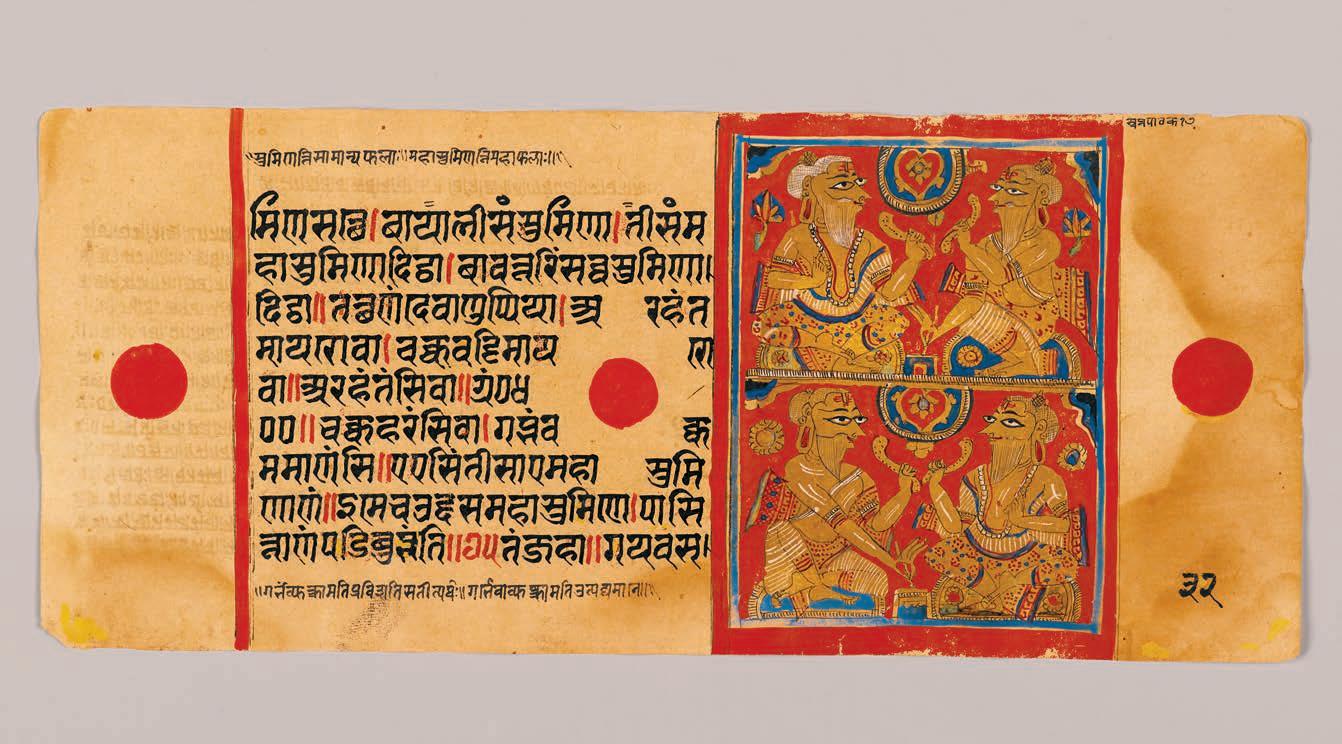 सुमिणत्ति सामान्यफलाः॥ महासुमिणत्ति महाफलाः॥
मिणसत्थे। बायालीसं सुमिणा। तीसं म
हासुमिणा दिट्ठा। बावत्तरिं सव्वसुमिणा।
दिट्ठा॥ तत्थणं देवाणुप्पिया। अरहंत
मायरो वा। चक्कवट्टिमायरो
वा॥ अरहंतंसि वा॥ ग्रं०५
००॥ चक्कहरंसि वा। गब्भं वक्क
ममाणंसि॥ एएसिं तीसाए महासुमि
णाणं॥ इमे चउद्दस महासुमिणे। पासि
त्ताणं पडिबुज्झंति॥ ७५ तं जहा॥ गयवस।
॥ गर्भे व्युत्क्रामति प्रविशति सतीत्यर्थः॥
स्वप्नपाठक
३२